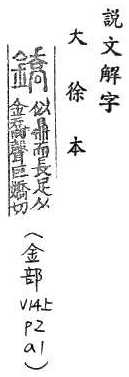 說文解字
大徐本
鐈 似鼎而長足从
金喬聲巨嬌切
(金部
V14上
P2
a1)